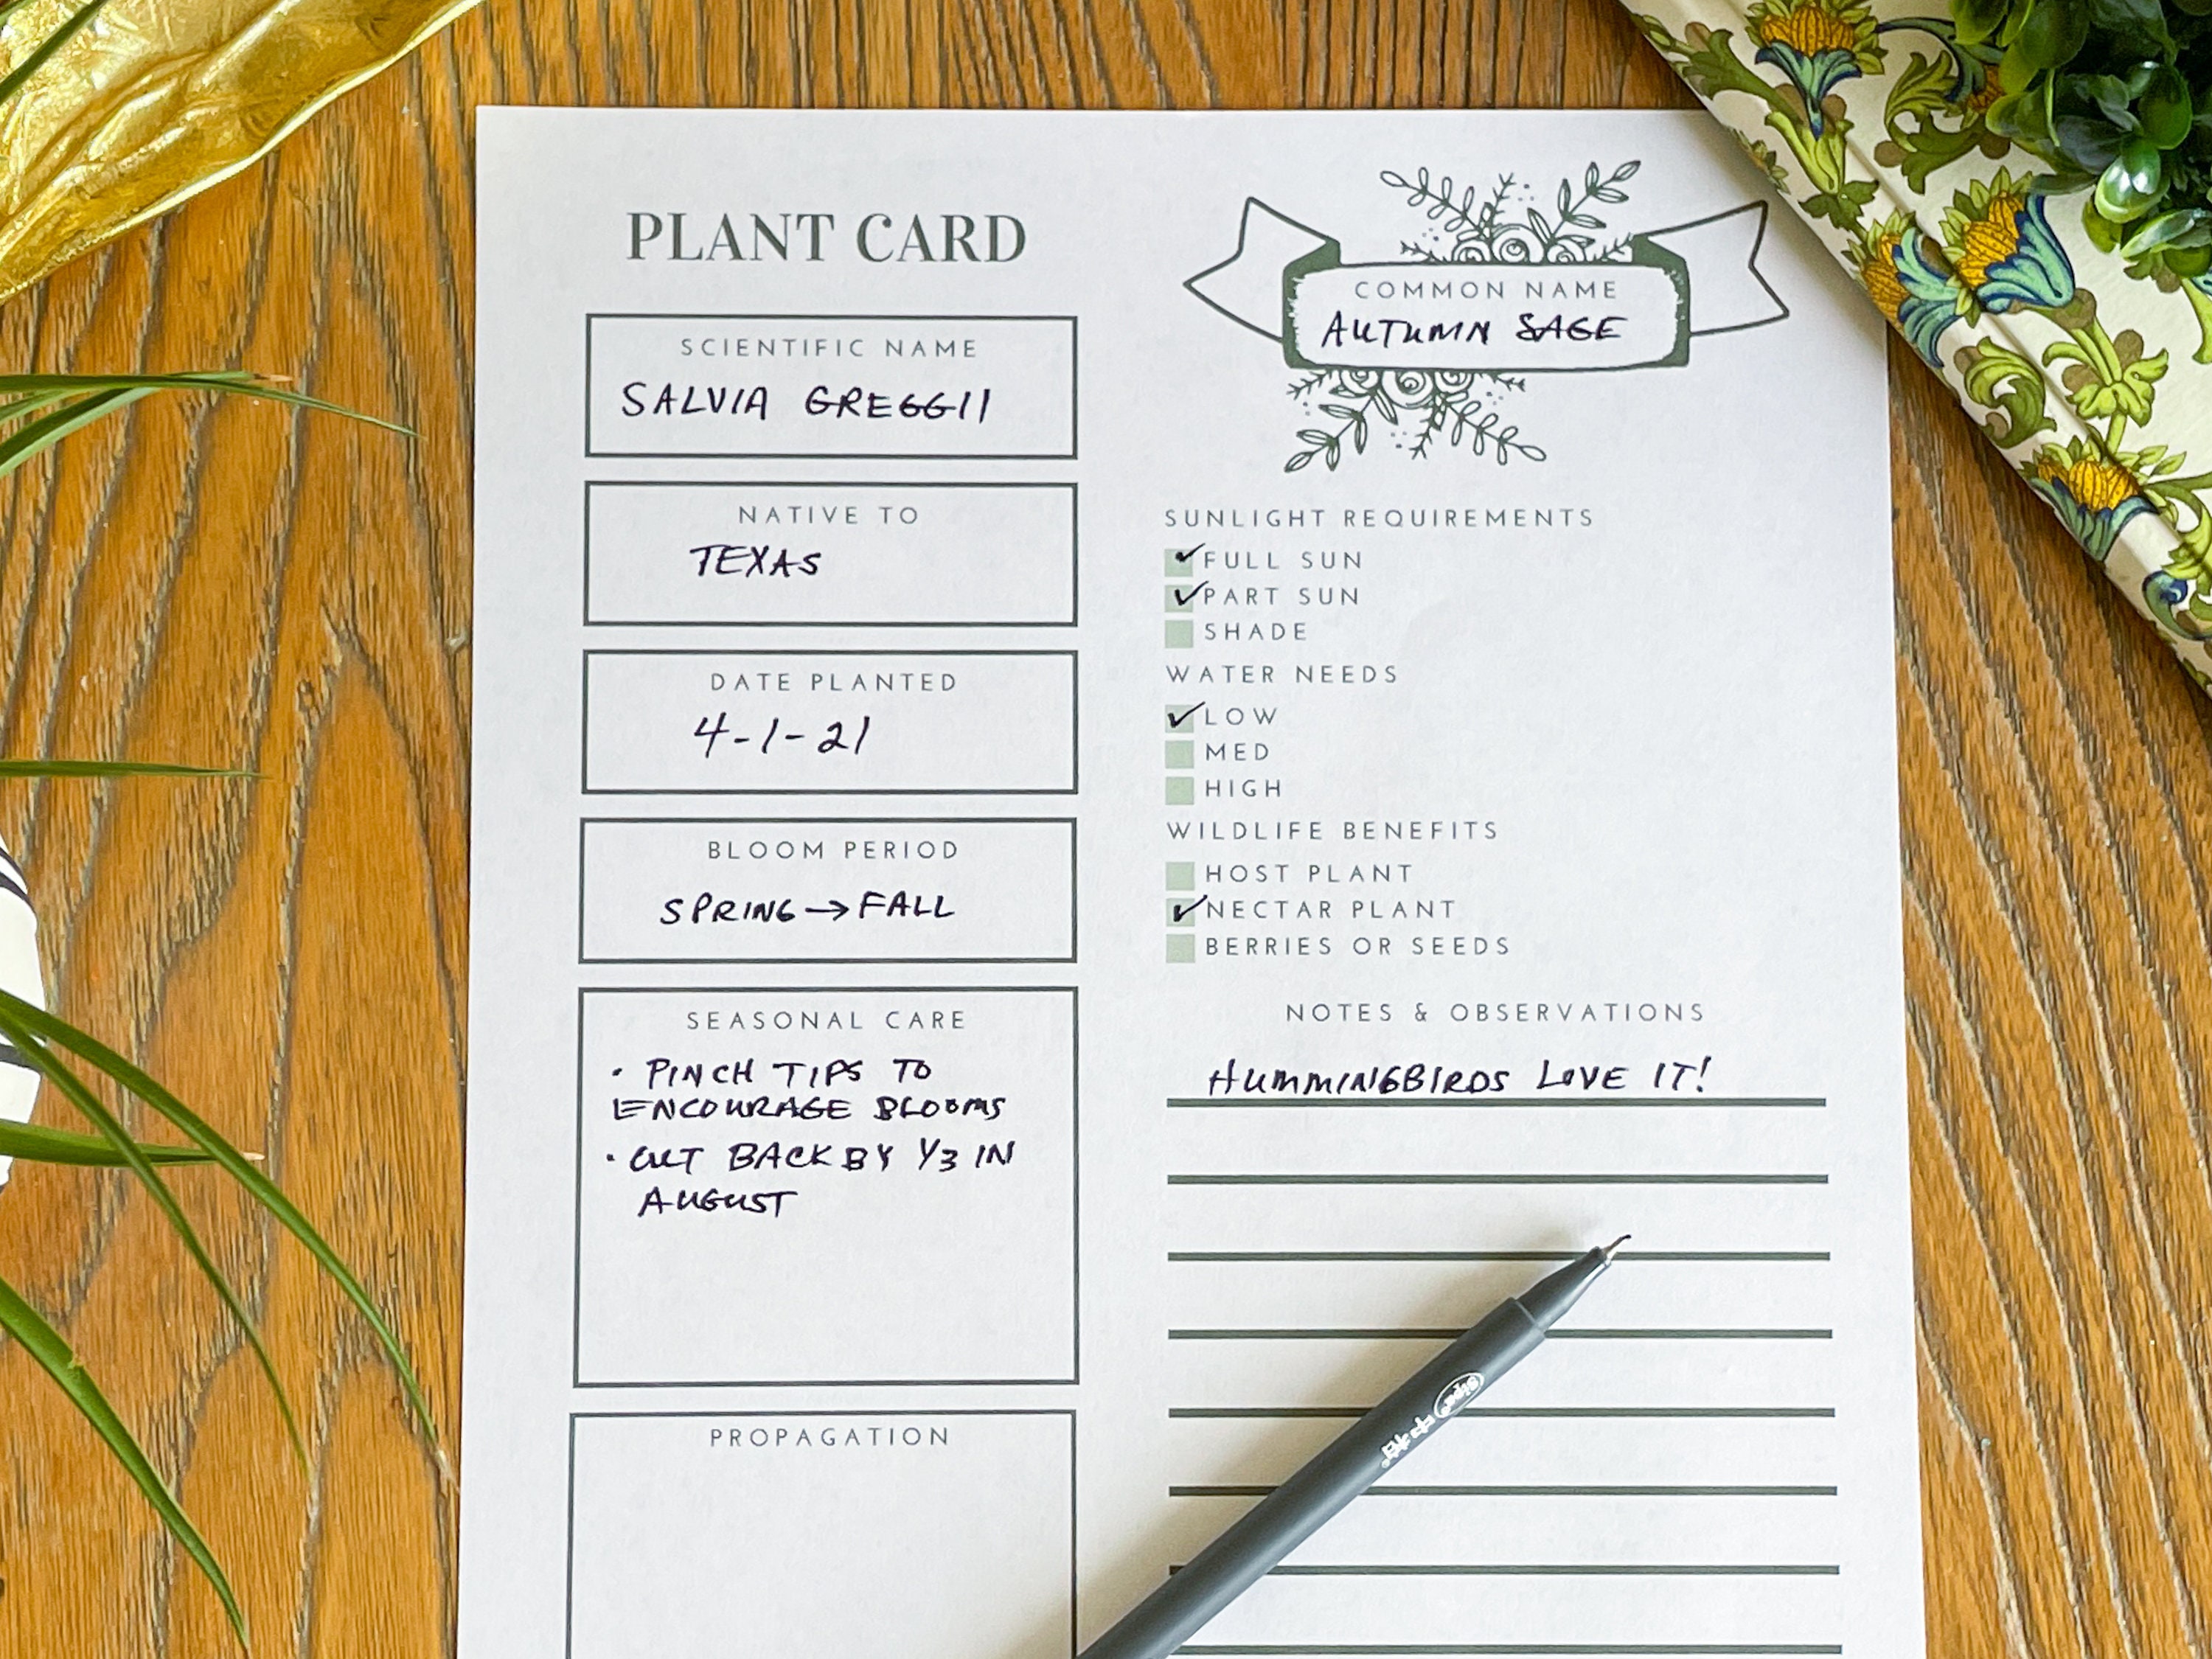 PLANT CARD
SCIENTIFIC NAME
SALVIA GREGGII
NATIVE TO
TEXAS
DATE PLANTED
4-1-21
BLOOM PERIOD
SPRING → FALL
SEASONAL CARE
• PINCH TIPS TO
ENCOURAGE BLOOMS
• CUT BACK BY 1/3 IN
AUGUST
PROPAGATION
COMMON NAME
AUTUMN SAGE
SUNLIGHT REQUIREMENTS
✓ FULL SUN
✓ PART SUN
SHADE
WATER NEEDS
✓ LOW
MED
HIGH
WILDLIFE BENEFITS
HOST PLANT
✓ NECTAR PLANT
BERRIES OR SEEDS
NOTES & OBSERVATIONS
HUMMINGBIRDS LOVE IT!